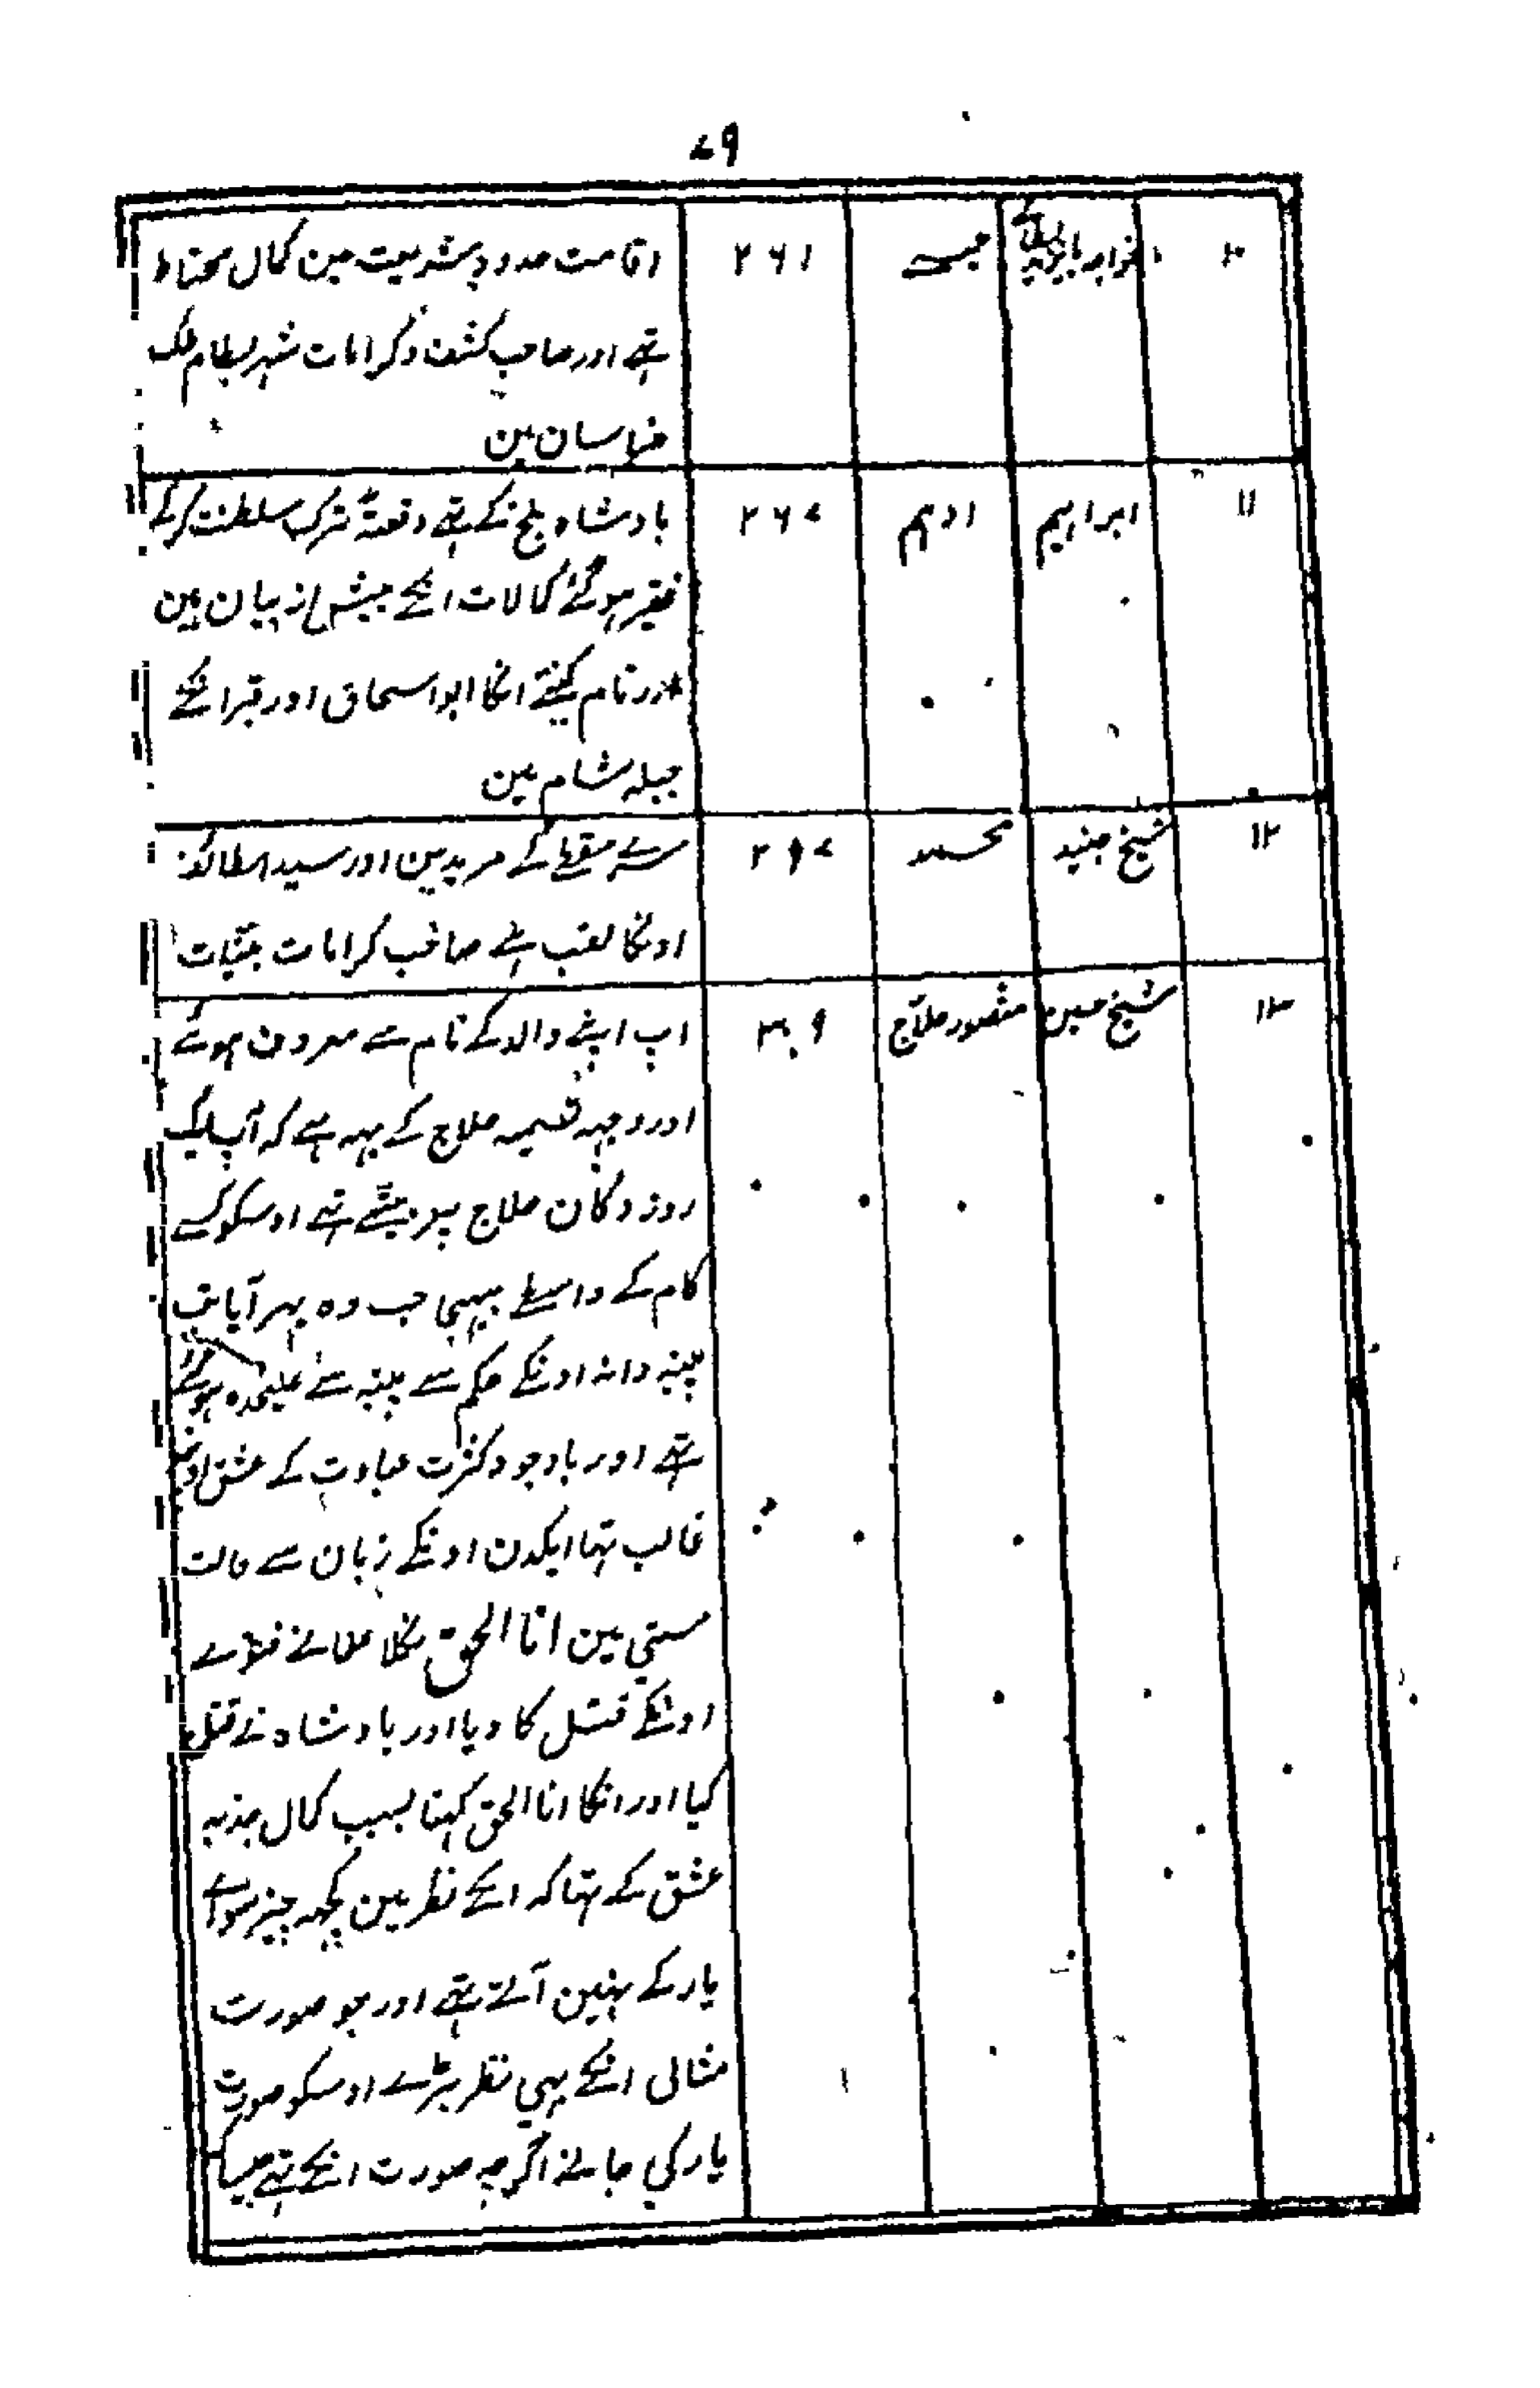 ۷۹
۱۰ خواجہ بایزید بسطامی عیسے ۲۶۱ اقامت حدود شریعت مین کمال محتاط
تہے اور صاحب کشف و کرامات شہر بسطام ملک
خراسان مین
۱۱ ابراہیم ادہم ۲۶۷ بادشاہ بلخ کے تہے دفعۃً ترک سلطنت کر کے
فقیر ہو گئے کمالات انکے بیش از بیان ہین
اور نام کنیتے انکا ابو اسحاق اور قبر انکے
جبلہ شام مین
۱۲ شیخ جنید محمد ۲۹۷ سرے سقطے کے مرید ہین اور سید الطائفہ
اونکا لقب ہے صاحب کرامات
۱۳ شیخ حسین منصور حلاج ۳۰۹ اپ اپنے والد کے نام سے معروف ہوئے
اور وجہہ تسمیہ حلاج کے یہہ ہے کہ آپ ایک
روز دکان حلاج پر بیٹھے تہے اوسکو کسے
کام کے واسطے بہیجا جب وہ پہر آیا تب
پنبہ دانہ اونکے حکم سے پنبہ سے علیحدہ ہو گئے
تہے اور باوجود کثرت عبادت کے عشق اونپر
غالب تہا ایکدن اونکے زبان سے حالت
مستی مین انا الحق نکلا علمانے فتوے
اونکے قتل کا دیا اور بادشاہ نے قتل
کیا اور انکا انا الحق کہنا بسبب کمال جذبہ
عشق کے تہا کہ انکے نظر مین کچہہ چیز سوائے
یار کے نہین آتے تہے اور جو صورت
مثالی انکے بہی نظر پڑے اوسکو صورت
یار کی جانے اگرچہ صورت انکے تہے جیسا کہ